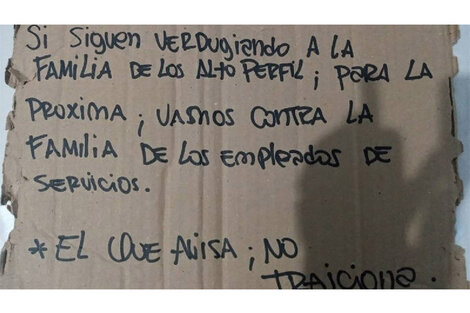 Si Siguen VERDUGIANDO A LA
FAMILIA DE LOS ALTO PERFIL; PARA LA
PROXIMA; VAMOS CONTRA LA
FAMILIA DE LOS EMPLEADOS DE
SERVICIOS.
* EL QUE AVISA; NO
TRAICIONA.